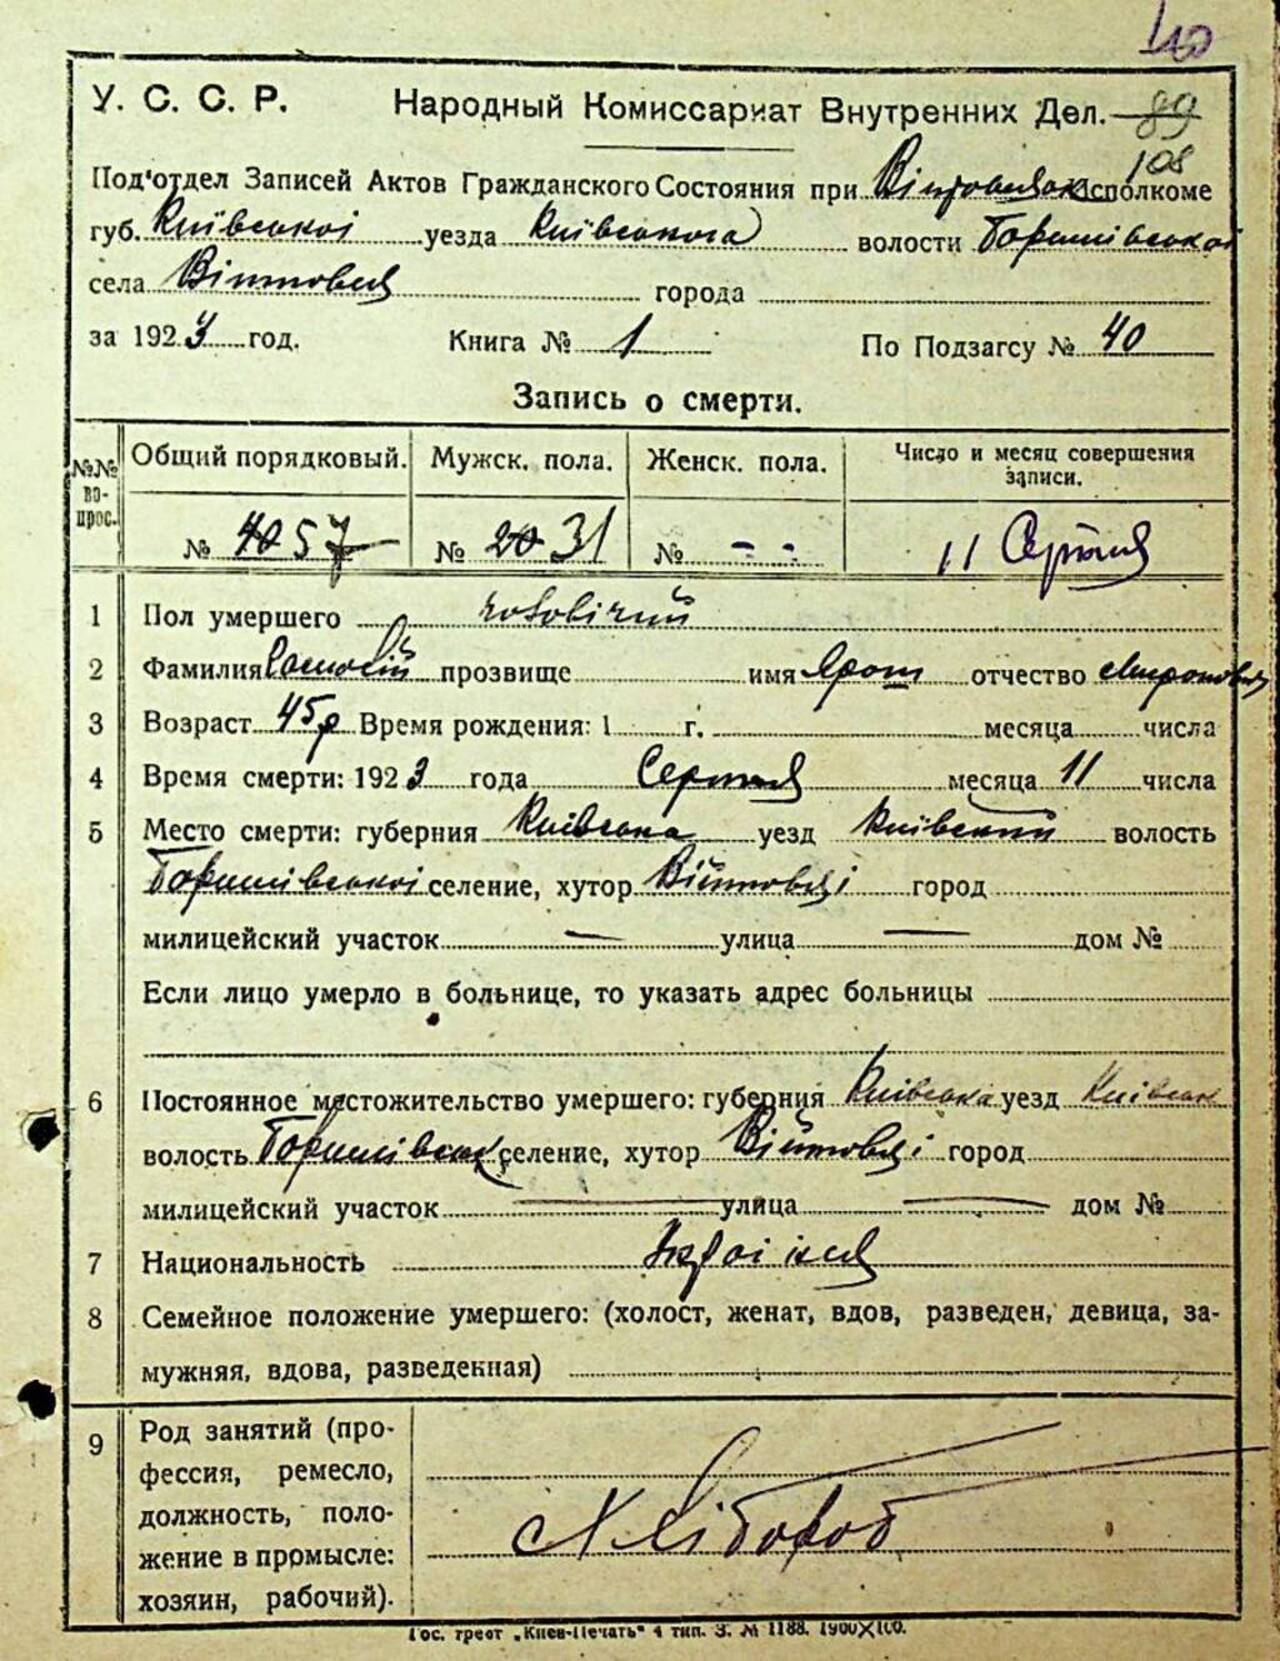 40
У. С. С. Р. Народный Комиссариат Внутренних Дел. 89
108
Под'отдел Записей Актов Гражданского Состояния при Исполкоме
губ. Київської уезда Київського волости
села Війтовця города
за 1923 год. Книга № 1 По Подзагсу № 40
Запись о смерти.
№№ во- прос. Общий порядковый. Мужск. пола. Женск. пола. Число и месяц совершения записи.
№ 40 57 № 20 31 № - - 11 Серпня
1 Пол умершего чоловічий
2 Фамилия прозвище имя отчество Миронович
3 Возраст 45 р Время рождения: 1 г. месяца числа
4 Время смерти: 1923 года Серпня месяца 11 числа
5 Место смерти: губерния Київська уезд Київський волость
селение, хутор Війтовці город
милицейский участок — улица — дом №
Если лицо умерло в больнице, то указать адрес больницы
6 Постоянное местожительство умершего: губерния Київська уезд Київськ
волость селение, хутор Війтовці город
милицейский участок — улица — дом №
7 Национальность
8 Семейное положение умершего: (холост, женат, вдов, разведен, девица, за-
мужняя, вдова, разведенная)
9 Род занятий (про-
фессия, ремесло,
должность, поло-
жение в промысле:
хозяин, рабочий).
Хлібороб
Гос. трест „Киев-Печать“ 4 тип. З. № 1188. 1900×100.